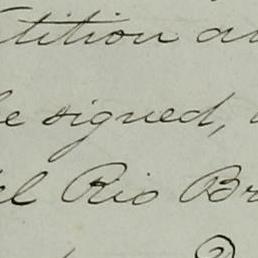 etition a
e signed,
el Rio Br
2